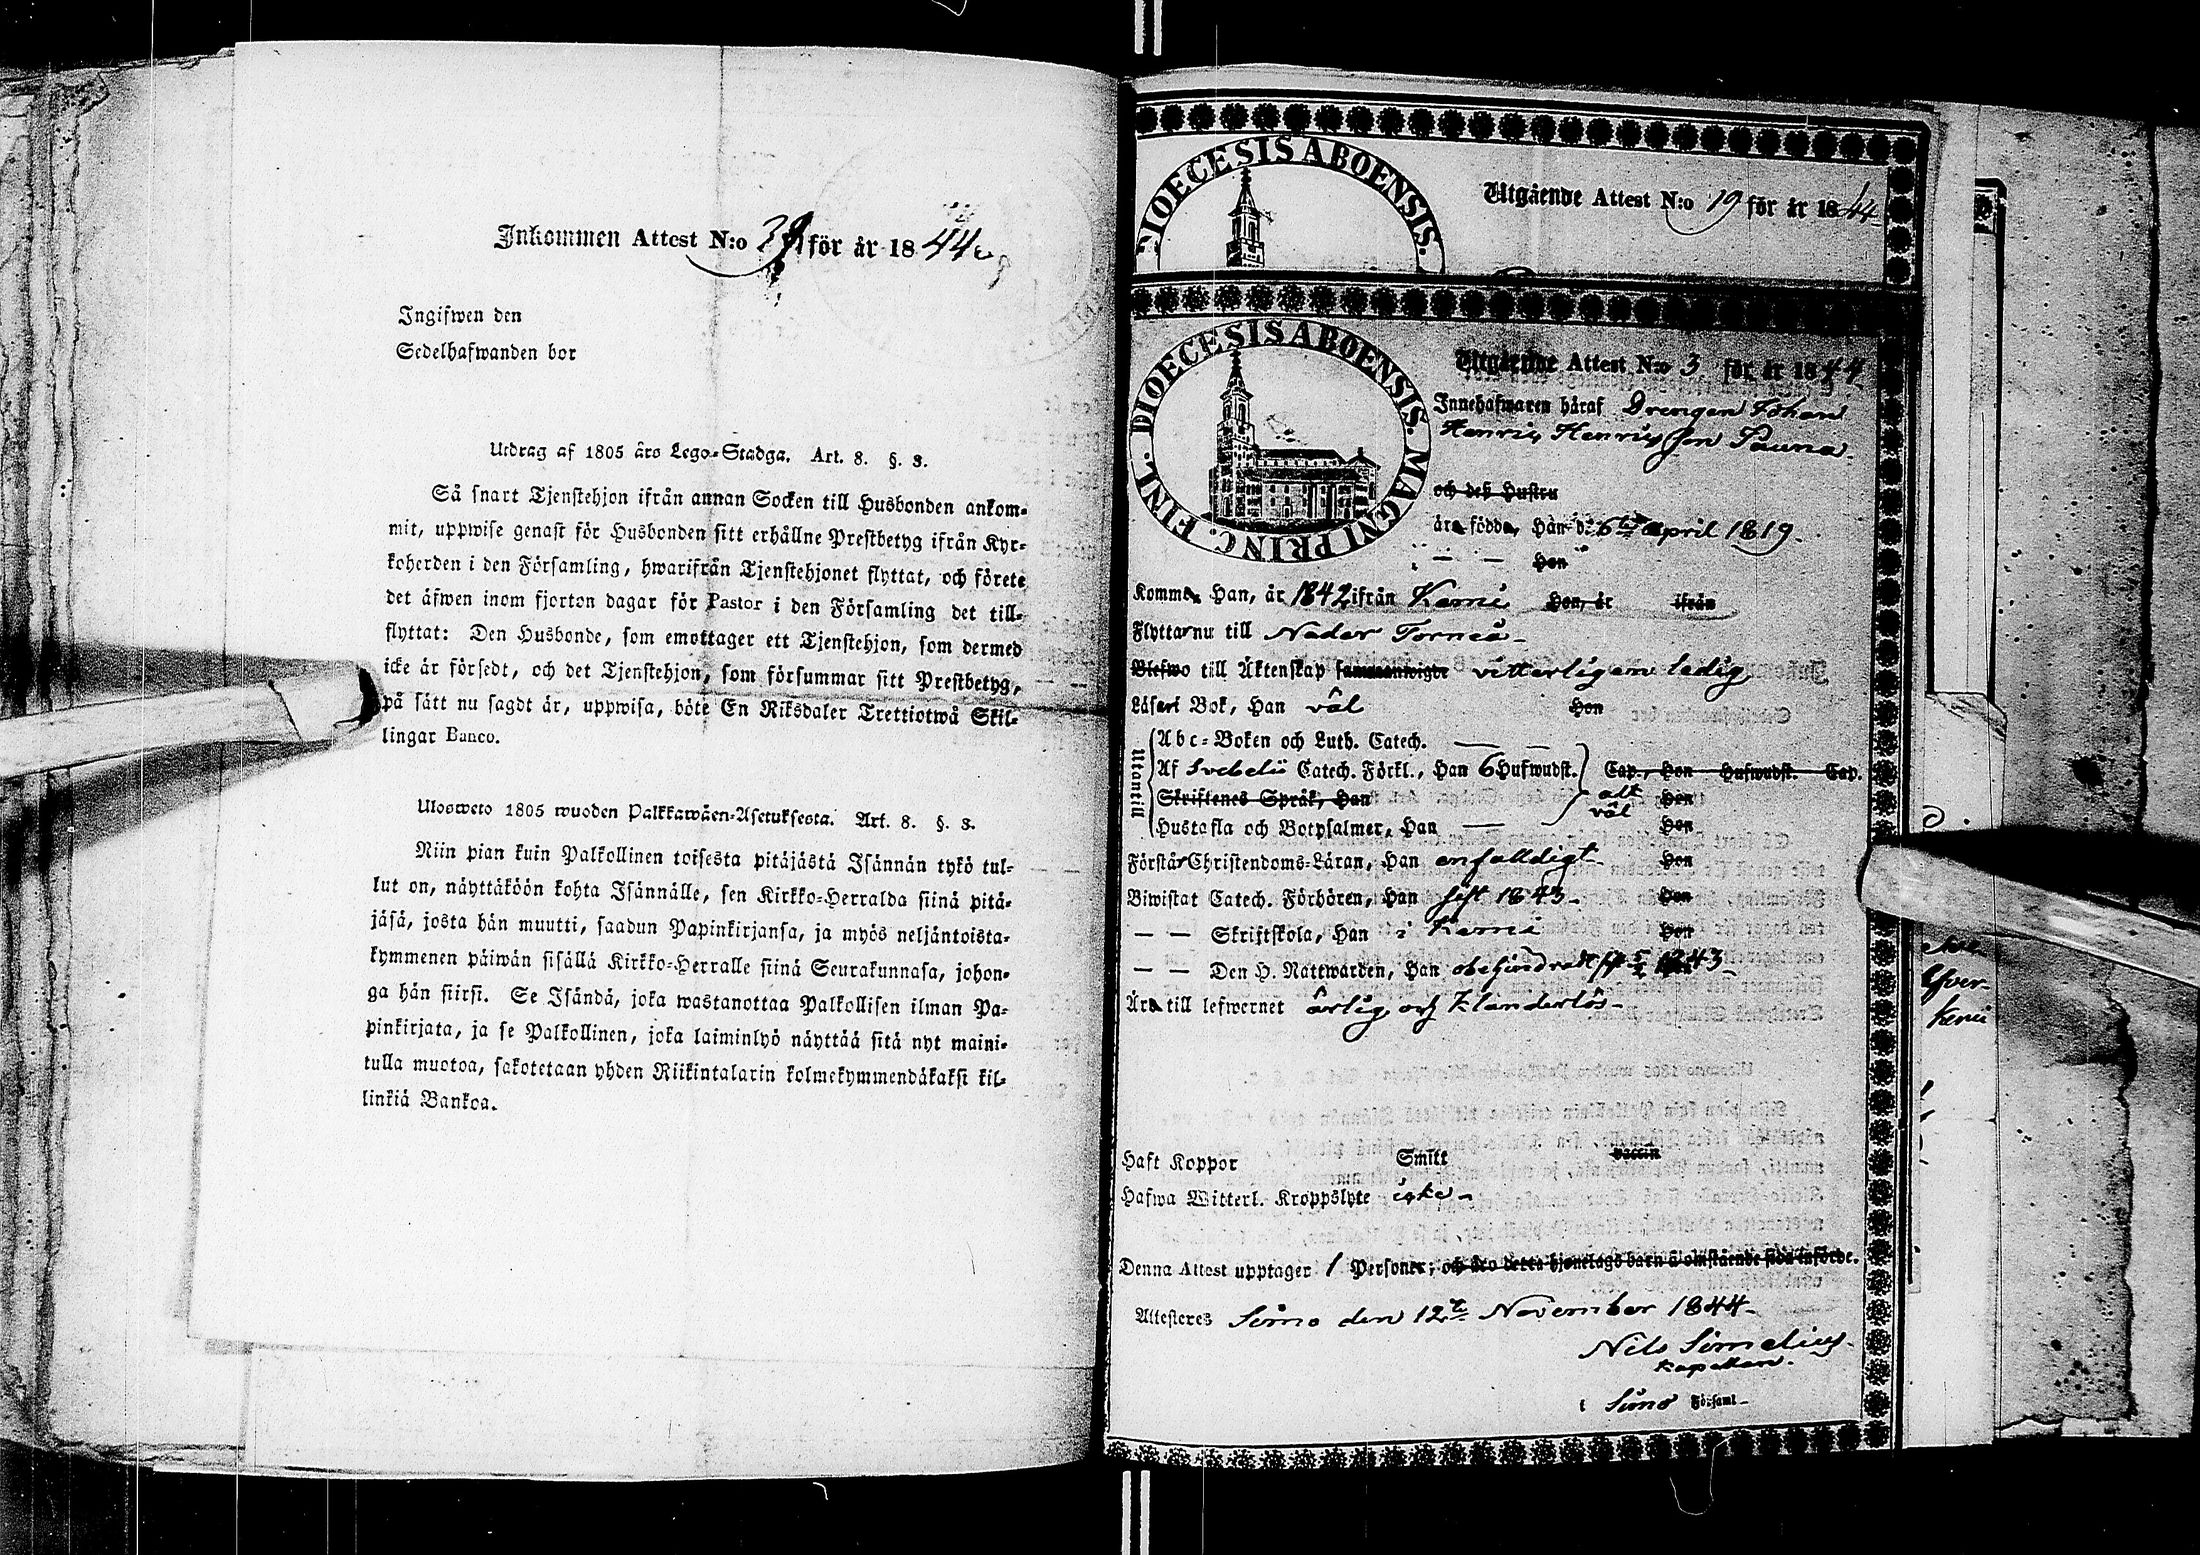 Inkommen Attest N:o 39 för år 1844
Ingifwen den
Sedelhafwanden bor
Utdrag af 1805 års Lego-Stadga. Art. 8. §. 3.
Så snart Tjenstehjon ifrån annan Socken till Husbonden ankom-
mit, uppwise genast för Husbonden sitt erhållne Prestbetyg ifrån Kyr-
koherden i den Församling, hwarifrån Tjenstehjonet flyttat, och förete
det äfwen inom fjorton dagar för Pastor i den Församling det till-
flyttat: Den Husbonde, som emottager ett Tjenstehjon, som dermed
icke är försedt, och det Tjenstehjon, som försummar sitt Prestbetyg,
på sätt nu sagdt är, uppwisa, böte En Riksdaler Trettiotwå Skil-
lingar Banco.
Ulosweto 1805 wuoden Palkkawäen-Asetuksesta. Art. 8. §. 3.
Niin pian kuin Palkollinen toisesta pitäjästä Isännän tykö tul-
lut on, näyttäköön kohta Isännälle, sen Kirkko-Herralda siinä pitä-
jäsä, josta hän muutti, saadun Papinkirjansa, ja myös neljäntoista-
kymmenen päiwän sisällä Kirkko-Herralle siinä Seurakunnasa, johon-
ga hän siirsi. Se Isändä, joka wastanottaa Palkollisen ilman Pa-
pinkirjata, ja se Palkollinen, joka laiminlyö näyttää sitä nyt maini-
tulla muotoa, sakotetaan yhden Riikintalarin kolmekymmendäkaksi kil-
linkiä Bankoa.
DIOECESIS ABOENSIS.
Utgående Attest N:o 19 för år 1844
DIOECESIS ABOENSIS. MAGNI PRINC. FINL.
Utgående Attest N:o 3 för år 1844
Innehafwaren häraf Drengen Johan
Henric Henricsson Sauna.
och deß Hustru
äro födde, Han d. 6te April 1819.
— — Hon
Komne, Han, år 1842 ifrån Kemi Hon, år ifrån
Flyttar nu till Neder Torneå
Blefwo till Äktenskap sammanwigde vitterligen ledig
Läser i Bok, Han väl Hon
Utantill
Abc-Boken och Luth. Catech. — —
Af Svebelii Catech. Förkl., Han 6 Hufwudst. Cap., Hon Hufwudst. Cap.
Skriftenes Språk, Han allt Hon
väl
Hustafla och Botpsalmer, Han — Hon
Förstår Christendoms-Läran, Han enfalldigt Hon
Biwistat Catech. Förhören, Han sist 1843 Hon
— — Skriftskola, Han i Kemi Hon
— — Den H. Nattwarden, Han obehindradt 1843
Äro till lefwernet ärlig och klanderlös
Haft Koppor Smitt vaccin
Hafwa Witterl. Kroppslyte icke
Denna Attest upptager 1 Personer; och äro detta hjonelags barn å omstående sida införde.
Attesteres Simo den 12te November 1844
Nils Simelius
Kapellan.
i Simo Församl